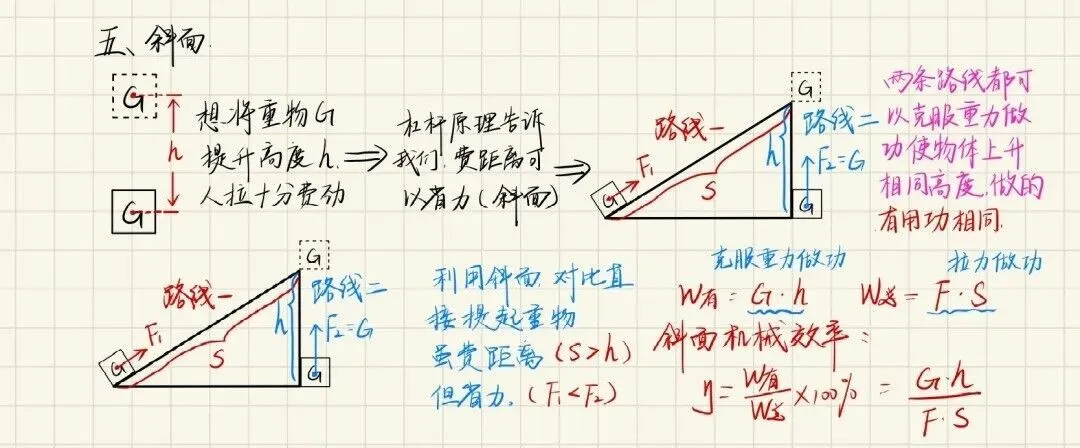 五、斜面.
G
h
G
想将重物G
提升高度h.
人拉十分费劲
⇒
杠杆原理告诉
我们,费距离可
以省力(斜面)
⇒
路线一
G
F₁
S
G
h
路线二
F₂=G
G
两条路线都可
以克服重力做
功使物体上升
相同高度.做的
有用功相同.
路线一
G
F₁
S
G
h
路线二
F₂=G
G
利用斜面.对比直
接提起重物
虽费距离(S>h)
但省力.(F₁<F₂)
克服重力做功
W有=G·h
拉力做功
W总=F·S
斜面机械效率:
η=W有/W总×100%=G·h/F·S